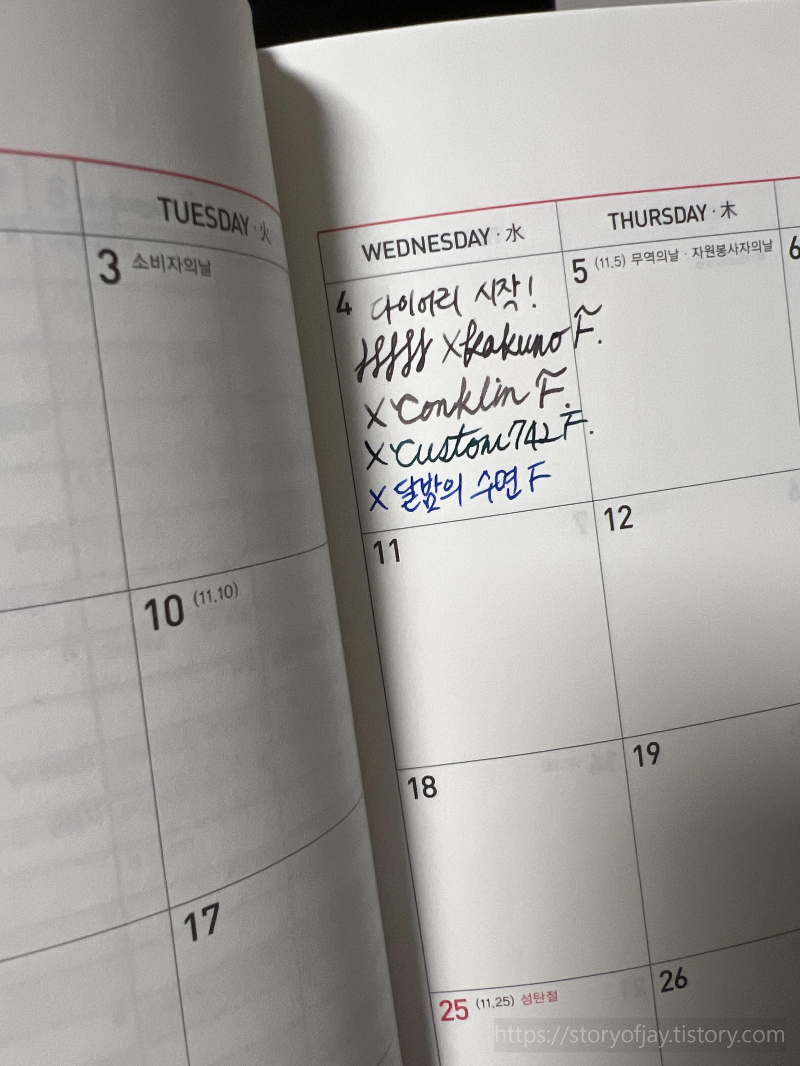 TUESDAY · 火
WEDNESDAY · 水
THURSDAY · 木
3 소비자의날
4 다이어리 시작!
X Kakuno F.
X Conklin F.
X Custom 742 F.
X 달밤의 수면 F
5 (11.5) 무역의날 · 자원봉사자의날
6
10 (11.10)
11
12
17
18
19
25 (11.25) 성탄절
26
https://storyofjay.tistory.com